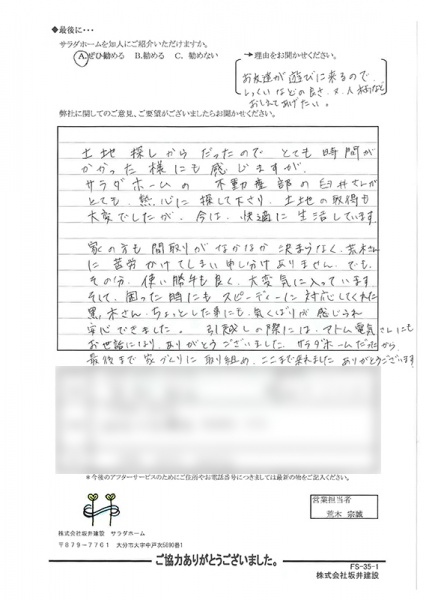 ◆最後に・・・
サラダホームを知人にご紹介いただけますか。
A.ぜひ勧める　B.勧める　C、勧めない
→理由をお聞かせください。
お友達が遊びに来るので、
しっくいなどの良さ、又、人柄など
おしえてあげたい。
弊社に関してのご意見、ご要望がございましたらお聞かせください。
土地探しからだったので とても時間が
かかった様にも感じますが、
サラダホームの 不動産部の臼井さんが
とても、熱心に探して下さり、土地の取得も
大変でしたが、今は、快適に生活しています。
家の方も間取りがなかなか決まらなく、荒木さん
に苦労かけてしまい申し分けありません。でも、
その分、使い勝手も良く、大変気に入っています
そして、困った時にもスピーディーに対応してくれた
黒木さん、ちょっとした事にも、気くばりが感じられ
安心できました。 引渡しの際には、アトム電気さんにも
お世話になり、ありがとうございました。サラダホームだったから
最後まで家づくりに取り組め、ここまで来れました ありがとうございます
*今後のアフターサービスのためにご住所やお電話番号につきましては最新の物をご記入ください。
営業担当者
荒木 宗誠
株式会社坂井建設 サラダホーム
〒879-7761 大分市大字中戸次5090番1
ご協力ありがとうございました。
FS-35-1
株式会社坂井建設